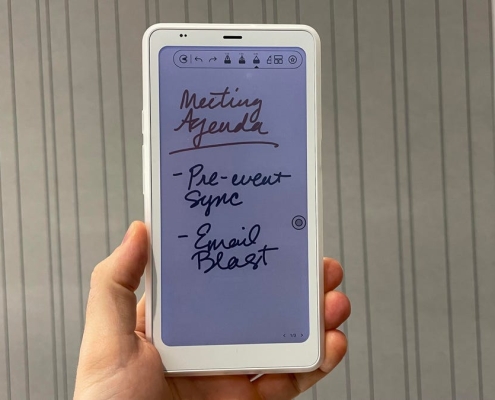 Meeting
Agenda
- Pre-event
Sync
- Email
Blast